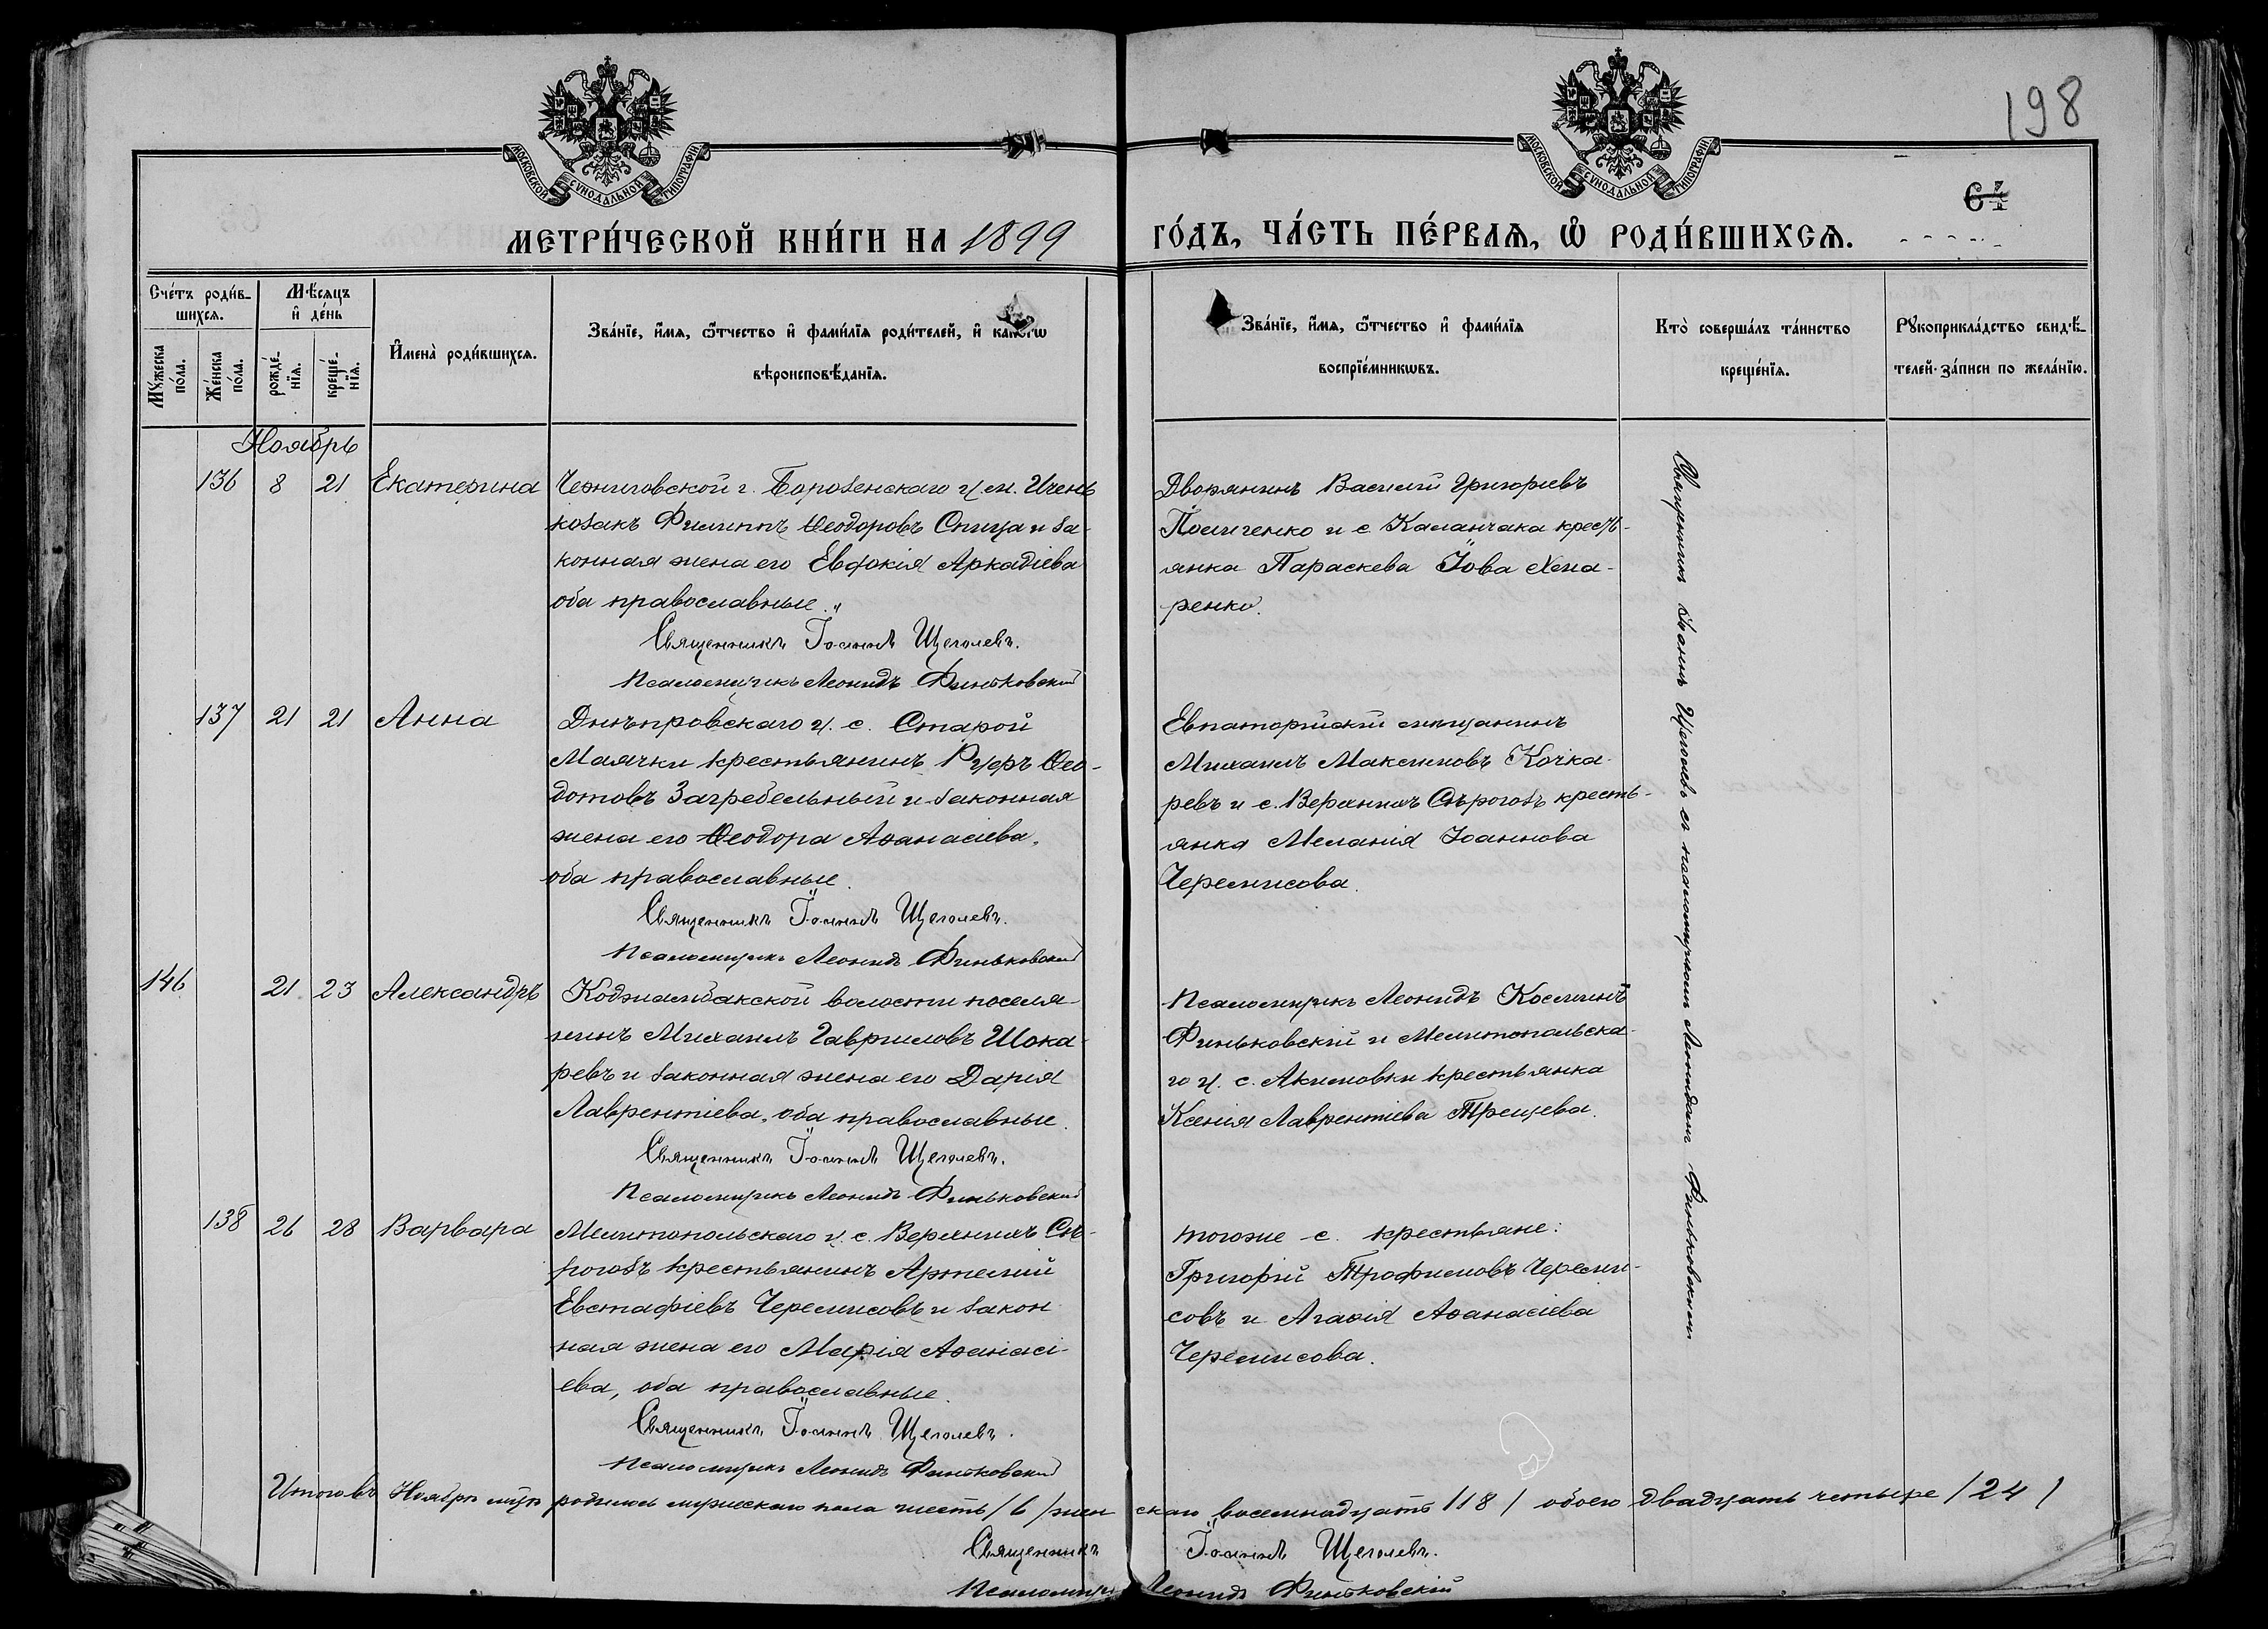 198
МОСКОВСКОЙ СѴНОДАЛЬНОЙ ТИПОГРАФІИ
МОСКОВСКОЙ СѴНОДАЛЬНОЙ ТИПОГРАФІИ
МЕТРИ́ЧЕСКОЙ КНИ́ГИ НА 1899
ГО́ДЪ, ЧА́СТЬ ПЕ́РВАѦ, Ѡ҆ РОДИ́ВШИХСѦ.
Сче́тъ роди́в-
шихсѧ.
Мꙋ́жеска по́ла.
Же́нска по́ла.
Мѣ́сяцъ
и҆ де́нь
рожде́-нїѧ.
креще́-нїѧ.
И҆мена̀ роди́вшихсѧ.
Зва́нїе, и҆́мѧ, ѻ҆́тчество и҆ фами́лїѧ роди́телей, и҆ какогѡ
вѣроисповѣ́данїѧ.
Зва́нїе, и҆́мѧ, ѻ҆́тчество и҆ фами́лїѧ
воспрїе́мникѡвъ.
Кто̀ соверша́лъ та́инство
креще́нїѧ.
Рꙋкоприкла́дство свидѣ́-
телей за́писи по жела́нїю.
Ноябрь
136 8 21 Екатерина
Черниговской г. Борозенскаго у. м. Ичень
козакъ Филиппъ Ѳеодоровъ Спица и за-
конная жена его Евдокія Аркадіева
оба православные.
Священникъ Іоаннъ Щеголевъ.
Псаломщикъ Леонидъ Финьковскій
Дворянинъ Василій Григорьевъ
и с. Каланчака кресть-
янка Параскева Іова
ренко.
137 21 21 Анна
Днѣпровскаго у. с. Старой
Маячки крестьянинъ Ѳео-
дотовъ Загребельный и законная
жена его Ѳеодора Аѳанасіева,
оба православные.
Священникъ Іоаннъ Щеголевъ.
Псаломщикъ Леонидъ Финьковскій
Евпаторійскій мѣщанинъ
Михаилъ Максимовъ Кочка-
ревъ и с. Верхнихъ Сѣрогозъ кресть-
янка Меланія Іоаннова
Черемисова.
146 21 23 Александръ
Коджамбакской волости поселя-
нинъ Михаилъ Гавриловъ Шока-
ревъ и законная жена его Дарія
Лаврентіева, оба православные.
Священникъ Іоаннъ Щеголевъ.
Псаломщикъ Леонидъ Финьковскій
Псаломщикъ Леонидъ Косминъ
Финьковскій и Мелитопольска-
го у. с. Акимовки крестьянка
Ксенія Лаврентіева Трещева.
138 26 28 Варвара
Мелитопольскаго у. с. Верхнихъ Сѣ-
рогозъ крестьянинъ Артемій
Евстафіевъ Черемисовъ и закон-
ная жена его Марія Аѳанасі-
ева, оба православные.
Священникъ Іоаннъ Щеголевъ.
Псаломщикъ Леонидъ Финьковскій
тогоже с. крестьяне:
Григорій Трофимовъ Череми-
совъ и Агафія Аѳанасіева
Черемисова.
Священникъ Іоаннъ Щеголевъ съ псаломщикомъ Леонидомъ Финьковскимъ
Итого въ Ноябрѣ мцѣ родилось мужескаго пола шесть /6/ женскаго восемнадцать /18/ обоего двадцать четыре /24/
Священникъ Іоаннъ Щеголевъ.
Псаломщикъ Леонидъ Финьковскій